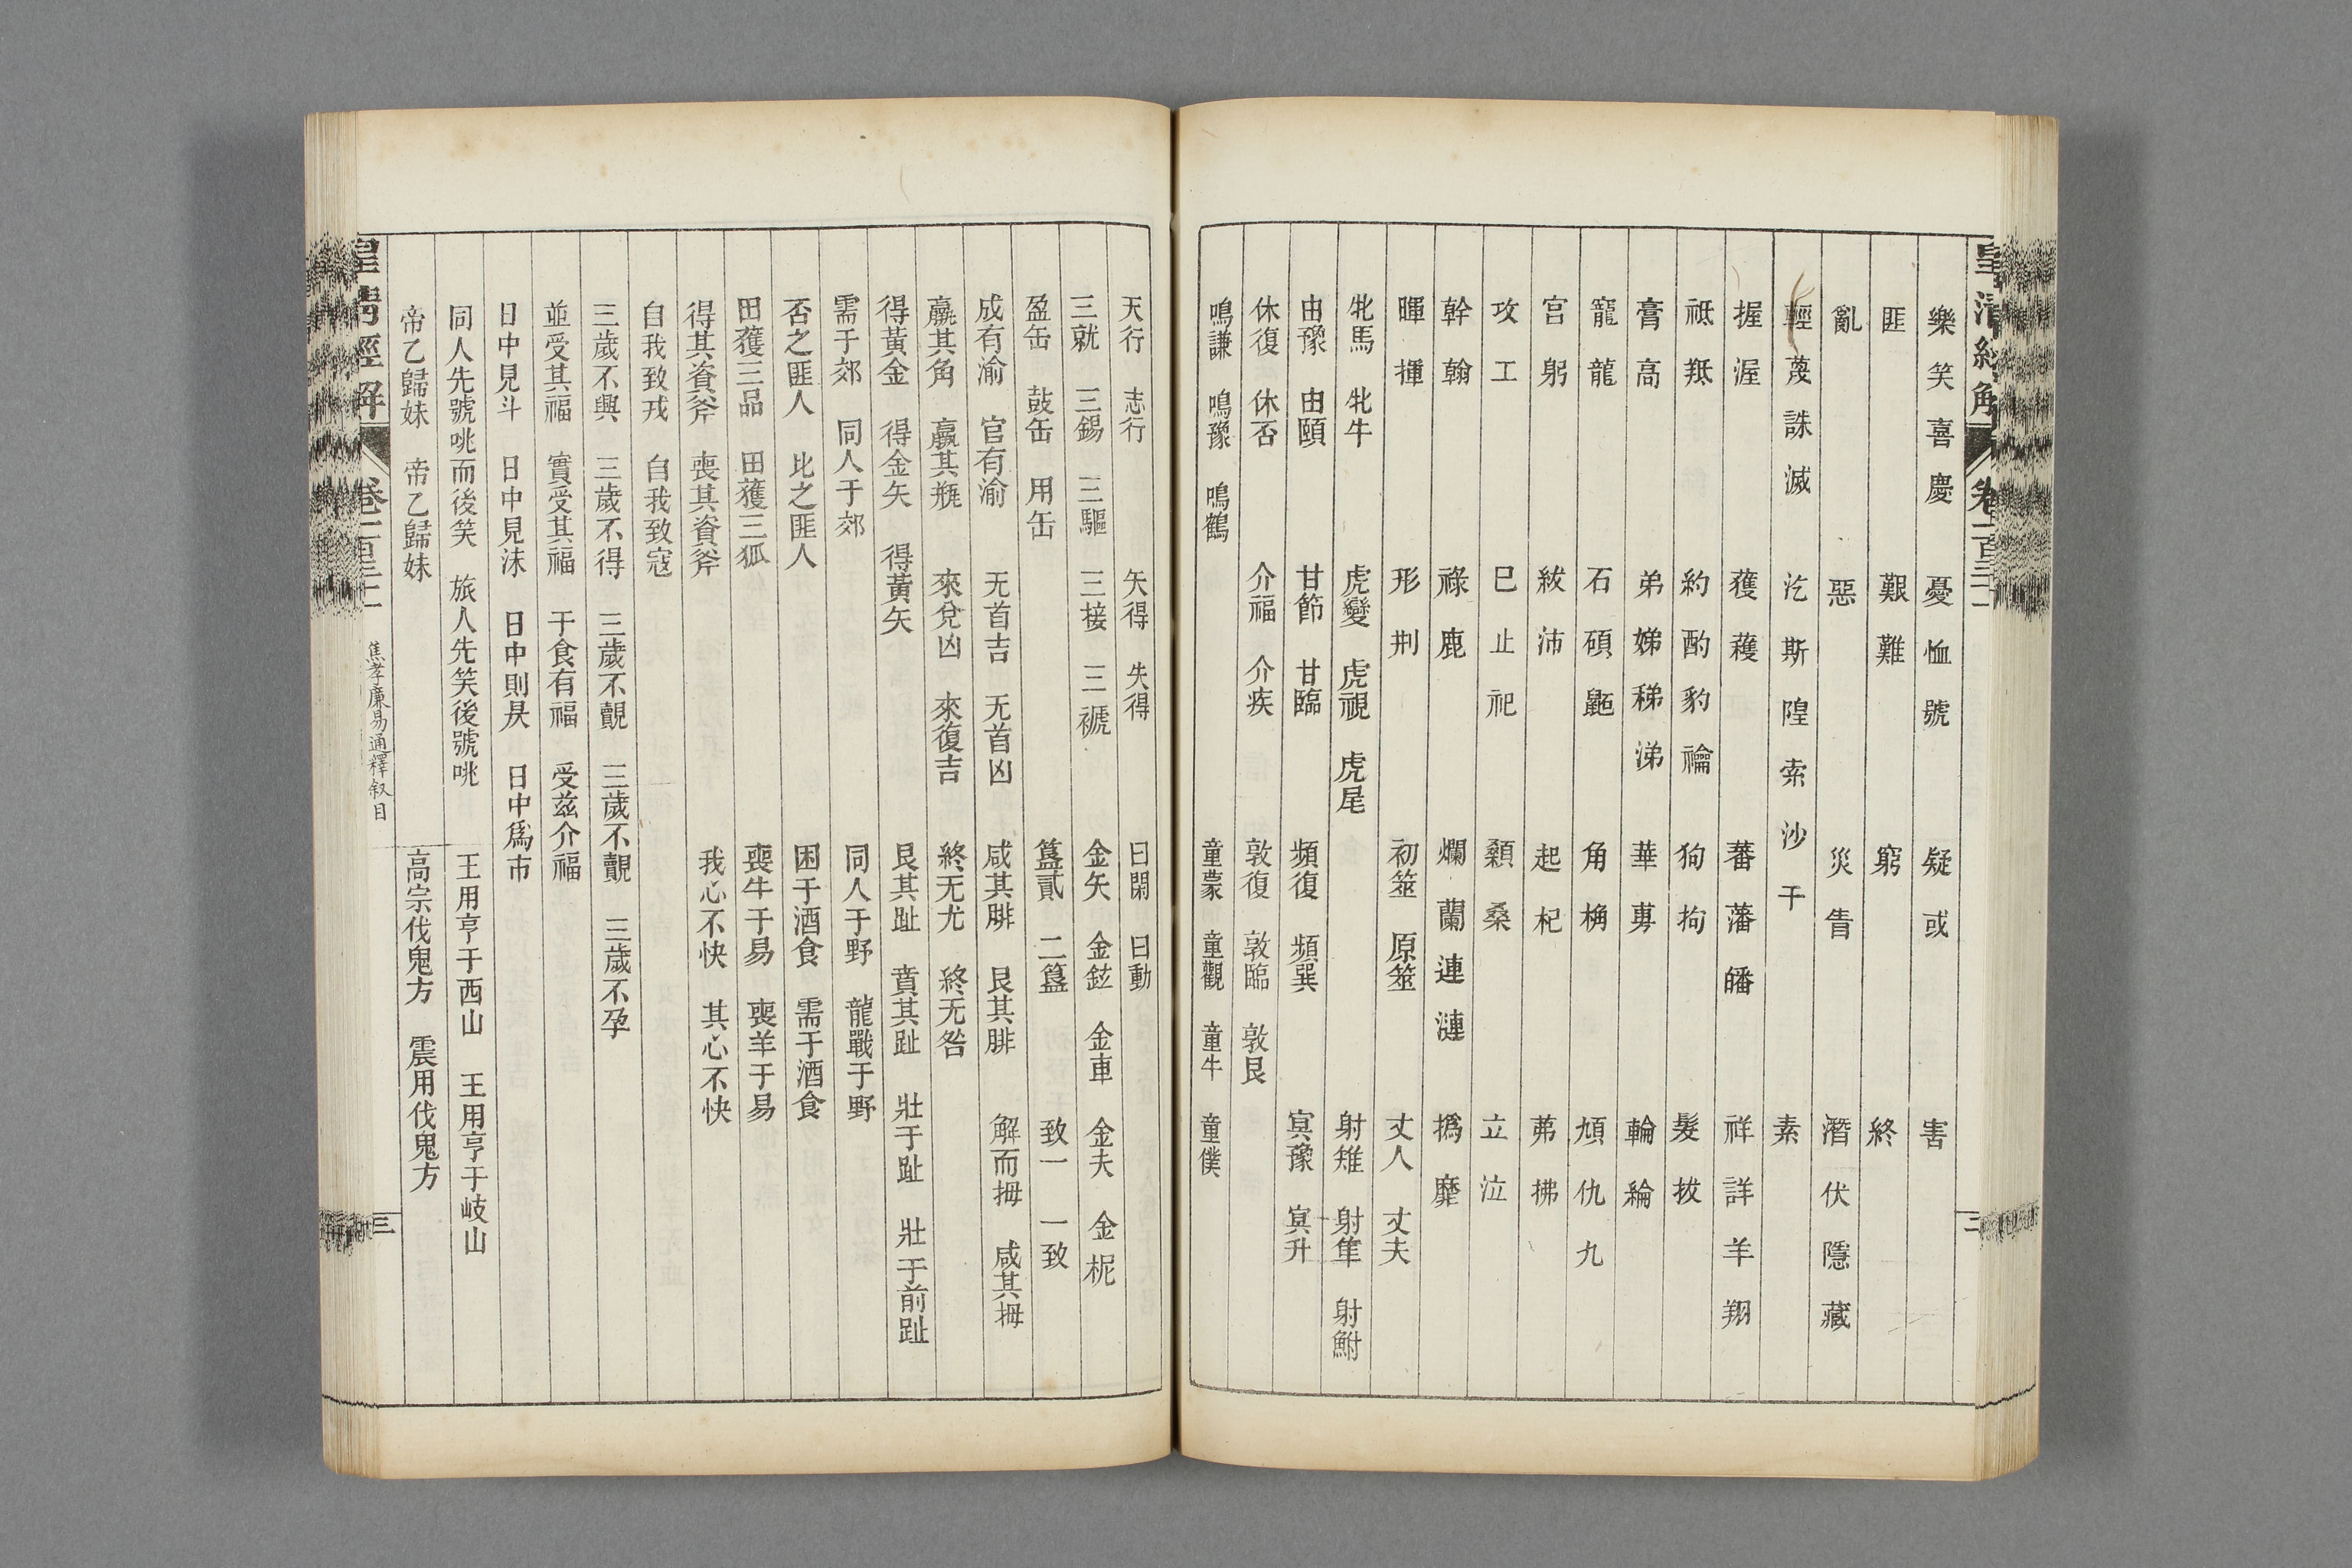 樂笑喜慶　憂恤號　疑或　害
匪　艱難　窮　終
亂　惡　災眚　潛伏隱藏
輕蔑誅滅　汔斯隍索沙干　素
握渥　獲蠖　蕃藩皤　祥詳羊翔
祗羝　約酌豹禴　狗拘　髮拔
膏高　弟娣稊涕　華　輪綸
寵龍　石碩鼫　角桷　頄仇九
宮躬　紱沛　起杞　茀拂
攻工　巳止祀　顙桑　立泣
幹翰　祿鹿　爛蘭連漣　撝靡
暉揮　形刑　初筮　原筮　丈人　丈夫
牝馬　牝牛　虎變　虎視　虎尾　射雉　射隼　射鮒
由豫　由頤　甘節　甘臨　頻復　頻巽　冥豫　冥升
休復　休否　介福　介疾　敦復　敦臨　敦艮
鳴謙　鳴豫　鳴鶴　童蒙　童觀　童牛　童僕
天行　志行　矢得　失得　曰閑　曰動
三就　三錫　三驅　三接　三褫　金矢　金鉉　金車　金夫　金柅
盈缶　鼓缶　用缶　簋貳　二簋　致一　一致
成有渝　官有渝　无首吉　无首凶　咸其腓　艮其腓　解而拇　咸其拇
羸其角　羸其瓶　來兌凶　來復吉　終无尤　終无咎
得黃金　得金矢　得黃矢　艮其趾　賁其趾　壯于趾　壯于前趾
需于郊　同人于郊　同人于野　龍戰于野
否之匪人　比之匪人　困于酒食　需于酒食
田獲三品　田獲三狐　喪牛于易　喪羊于易
得其資斧　喪其資斧　我心不快　其心不快
自我致戎　自我致寇
三歲不興　三歲不得　三歲不覿　三歲不覿　三歲不孕
並受其福　實受其福　于食有福　受茲介福
日中見斗　日中見沬　日中則昃　日中爲市
同人先號咷而後笑　旅人先笑後號咷　王用亨于西山　王用亨于岐山
帝乙歸妹　帝乙歸妹　高宗伐鬼方　震用伐鬼方
皇清經解　卷一百三十一　焦孝廉易通釋叙目　三